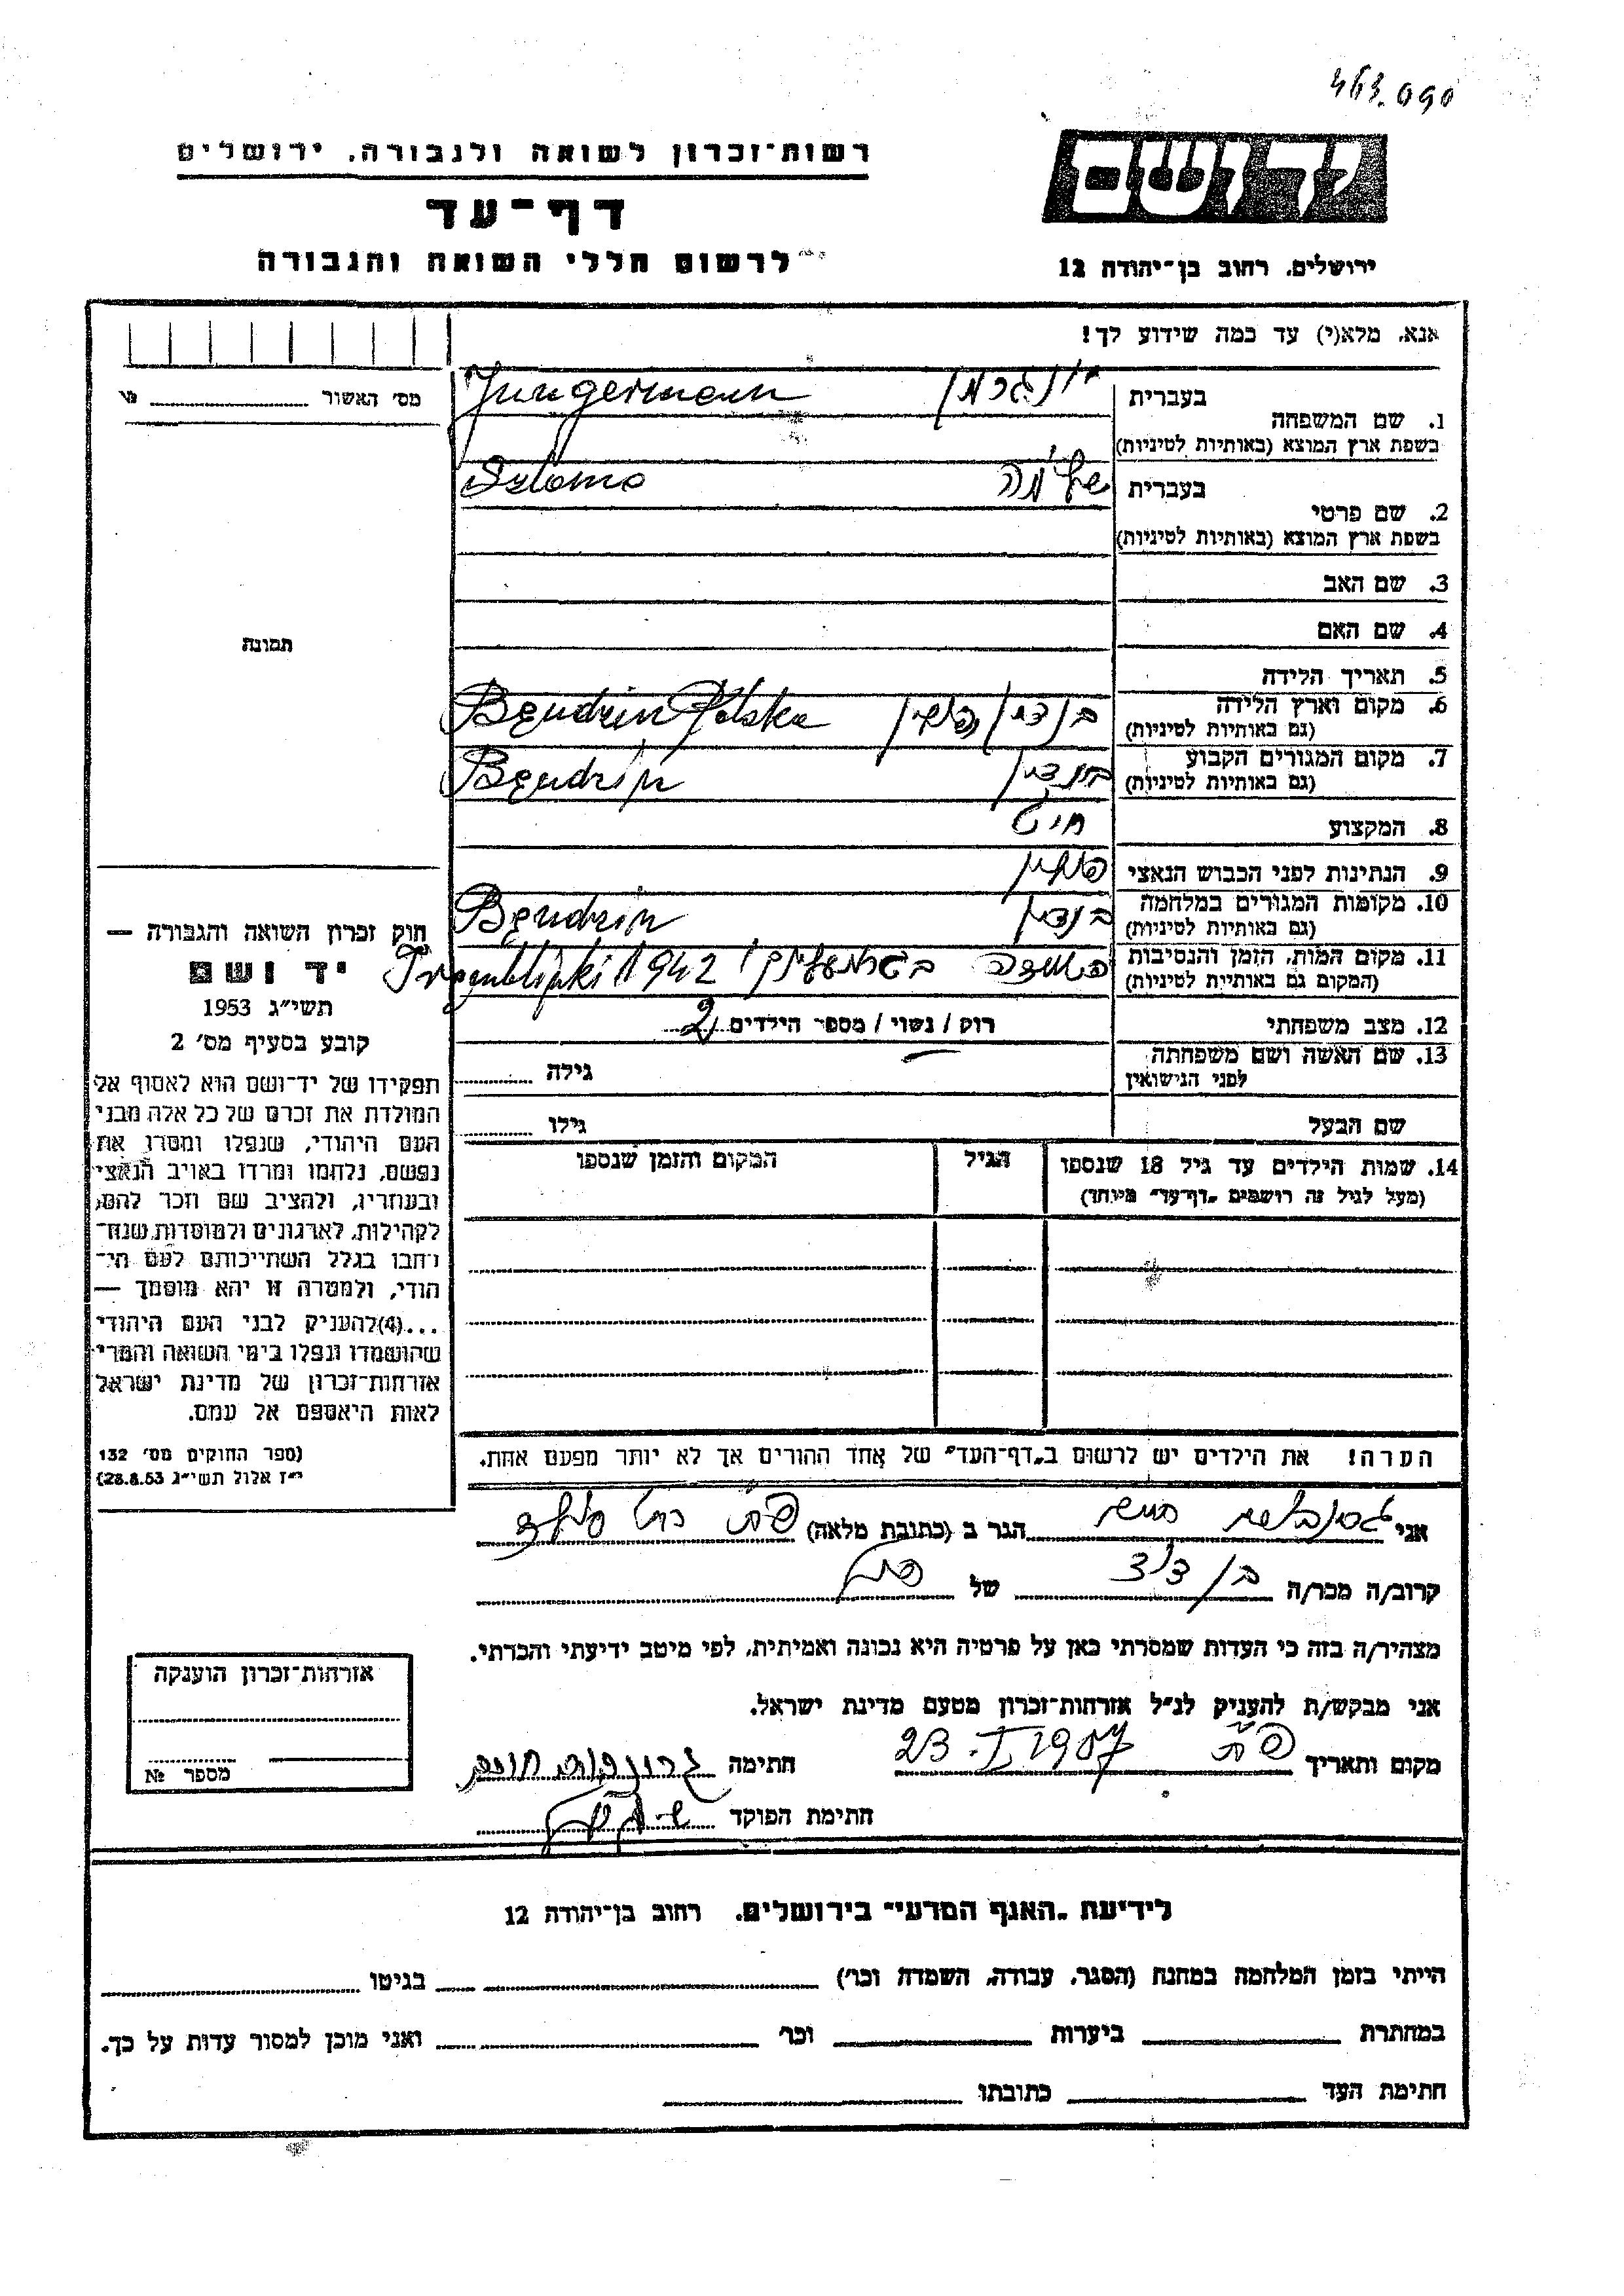 463.090
רשות־זכרון לשואה ולגבורה, ירושלים
דף־עד
לרשום חללי השואה והגבורה
יד ושם
ירושלים, רחוב בן־יהודה 12
אנא, מלא(י) עד כמה שידוע לך!
מס' האשור
1. שם המשפחה
בעברית יונגרמן Jungermann
בשפת ארץ המוצא (באותיות לטיניות)
2. שם פרטי
בעברית שלמה Szlomo
בשפת ארץ המוצא (באותיות לטיניות)
3. שם האב
4. שם האם
5. תאריך הלידה
6. מקום וארץ הלידה
(גם באותיות לטיניות) בנדין פולין Bendzin Polska
7. מקום המגורים הקבוע
(גם באותיות לטיניות) בנדין Bendzin
8. המקצוע חיט
9. הנתינות לפני הכבוש הנאצי פולין
10. מקומות המגורים במלחמה
(גם באותיות לטיניות) בנדין Bendzin
11. מקום המות, הזמן והנסיבות
(המקום גם באותיות לטיניות) 1942
12. מצב משפחתי רוק / נשוי / מספר הילדים 2
13. שם האשה ושם משפחתה
לפני הנישואין
גילה
שם הבעל
גילו
14. שמות הילדים עד גיל 18 שנספו
(מעל לגיל זה רושמים „דף־עד" מיוחד)
הגיל
המקום והזמן שנספו
הערה! את הילדים יש לרשום ב„דף־העד" של אחד ההורים אך לא יותר מפעם אחת.
תמונה
חוק זכרון השואה והגבורה —
יד ושם
תשי״ג 1953
קובע בסעיף מס' 2
תפקידו של יד־ושם הוא לאסוף אל
המולדת את זכרם של כל אלה מבני
העם היהודי, שנפלו ומסרו את
נפשם, נלחמו ומרדו באויב הנאצי
ובעוזריו, ולהציב שם וזכר להם,
לקהילות, לארגונים ולמוסדות שנח־
רחבו בגלל השתייכותם לעם הי־
הודי, ולמטרה זו יהא מוסמך —
...(4) להעניק לבני העם היהודי
שהושמדו ונפלו בימי השואה והמרי
אזרחות־זכרון של מדינת ישראל
לאות היאספם אל עמם.
(ספר החוקים מס' 132
י״ז אלול תשי״ג 28.8.53)
אני הגר ב (כתובת מלאה)
קרוב/ה מכר/ה בן דוד של
מצהיר/ה בזה כי העדות שמסרתי כאן על פרטיה היא נכונה ואמיתית, לפי מיטב ידיעתי והכרתי.
אני מבקש/ת להעניק לנ״ל אזרחות־זכרון מטעם מדינת ישראל.
מקום ותאריך 23.I 1957 חתימה
חתימת הפוקד
אזרחות־זכרון הוענקה
מספר №
לידיעת „האגף המדעי" בירושלים, רחוב בן־יהודה 12
הייתי בזמן המלחמה במחנה (הסגר, עבודה, השמדה וכו') בגיטו
במחתרת ביערות וכו' ואני מוכן למסור עדות על כך.
חתימת העד כתובתו